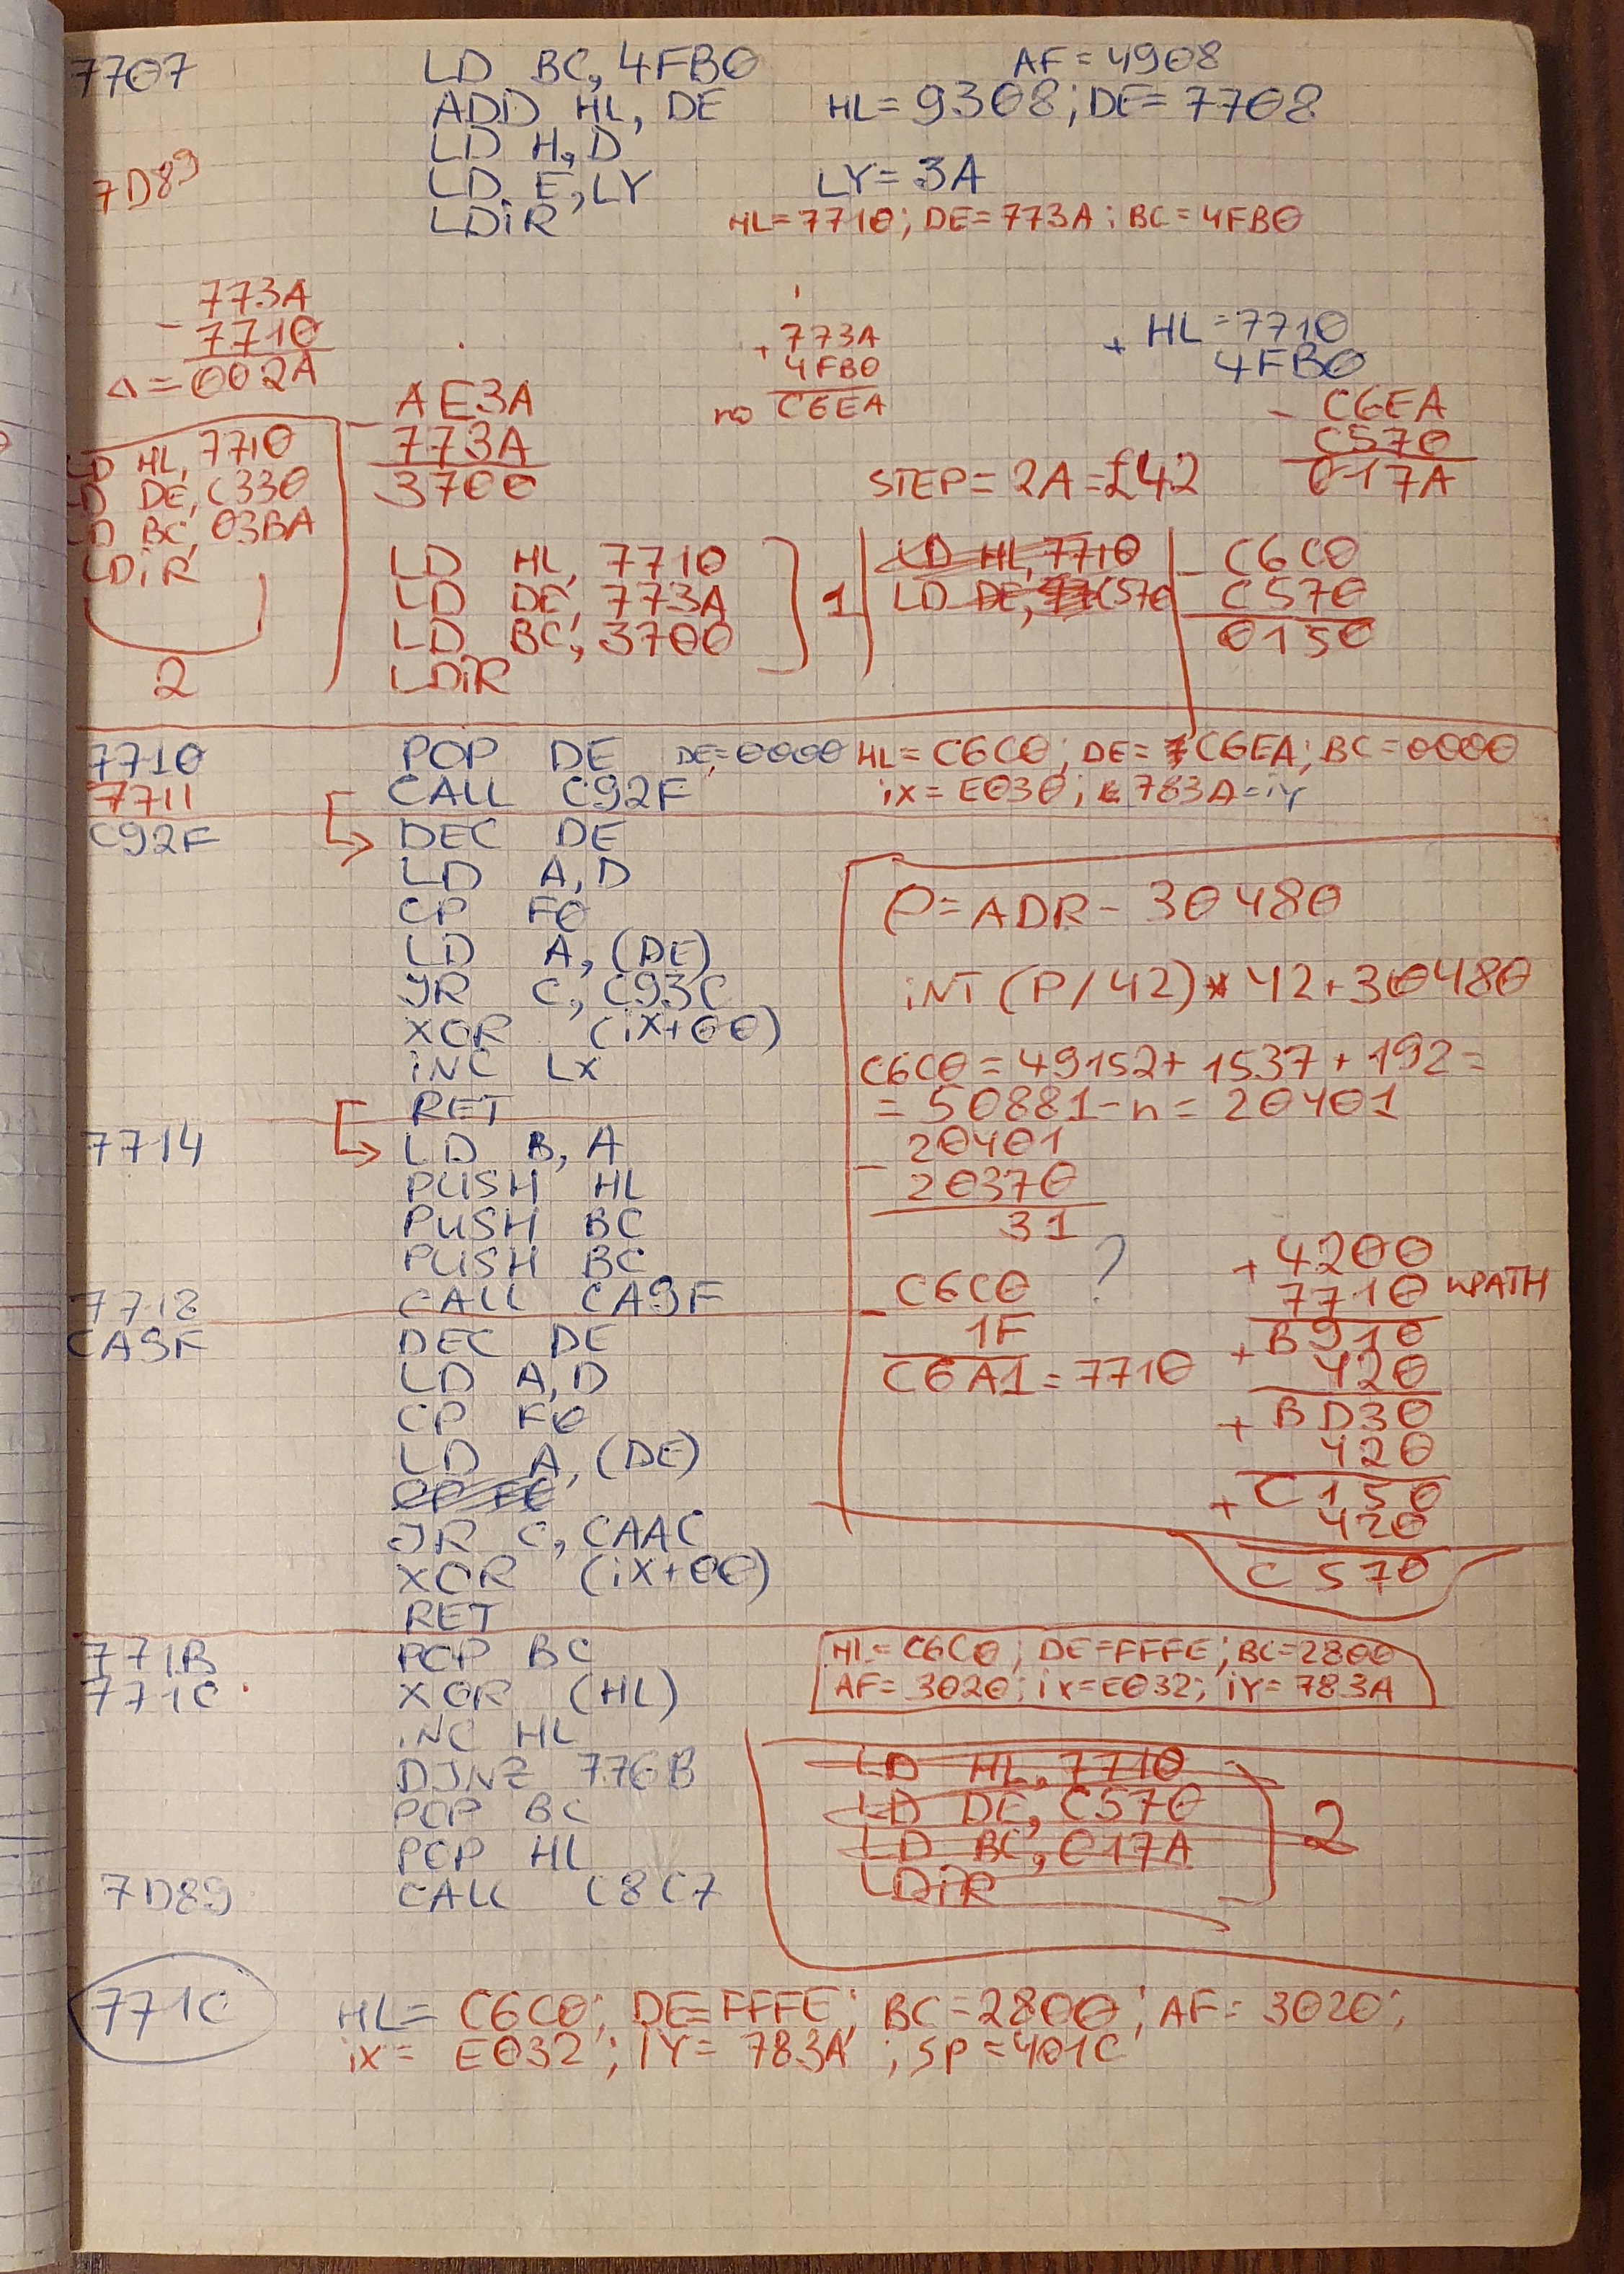 7707 LD BC, 4FB0 AF = 4908
ADD HL, DE HL = 9308; DE = 7708
LD H, D
7D89 LD E, LY LY = 3A
LDiR HL = 7710; DE = 773A; BC = 4FB0
773A
- 7710
Δ = 002A
773A
+ 4FB0
C6EA
+ HL = 7710
4FB0
- C6EA
C570
017A
AE3A
- 773A
3700
STEP = 2A = £42
HL, 7710
DE, C330
BC, 03BA
LDiR
2
LD HL, 7710
LD DE, 773A
LD BC, 3700
LDiR
1
LD HL, 7710
LD DE, C570
- C6C0
C570
0150
7710 POP DE DE = 0000 HL = C6C0; DE = C6EA; BC = 0000
7711 CALL C92F iX = E030; 783A = iY
C92F DEC DE
LD A, D
CP F0
LD A, (DE)
JR C, C93C
XOR (iX+00)
iNC LX
RET
7714 LD B, A
PUSH HL
PUSH BC
PUSH BC
7718 CALL CA9F
CA9F DEC DE
LD A, D
CP F0
LD A, (DE)
JR C, CAAC
XOR (iX+00)
RET
P = ADR - 30480
iNT (P/42) * 42 + 30480
C6C0 = 49152 + 1537 + 192 =
= 50881 - n = 20401
20401
- 20370
31
C6C0 ?
- 1F
C6A1 = 7710
+ 4200
7710 WPATH
+ B910
420
+ BD30
420
+ C150
420
C570
771B POP BC HL = C6C0; DE = FFFE; BC = 2800
771C XOR (HL) AF = 3020; iX = E032; iY = 783A
iNC HL
DJNZ 776B
POP BC
POP HL
7D89 CALL C8C7
LD HL, 7710
LD DE, C570
LD BC, 017A
LDiR
2
771C HL = C6C0; DE = FFFE; BC = 2800; AF = 3020;
iX = E032; IY = 783A; SP = 401C